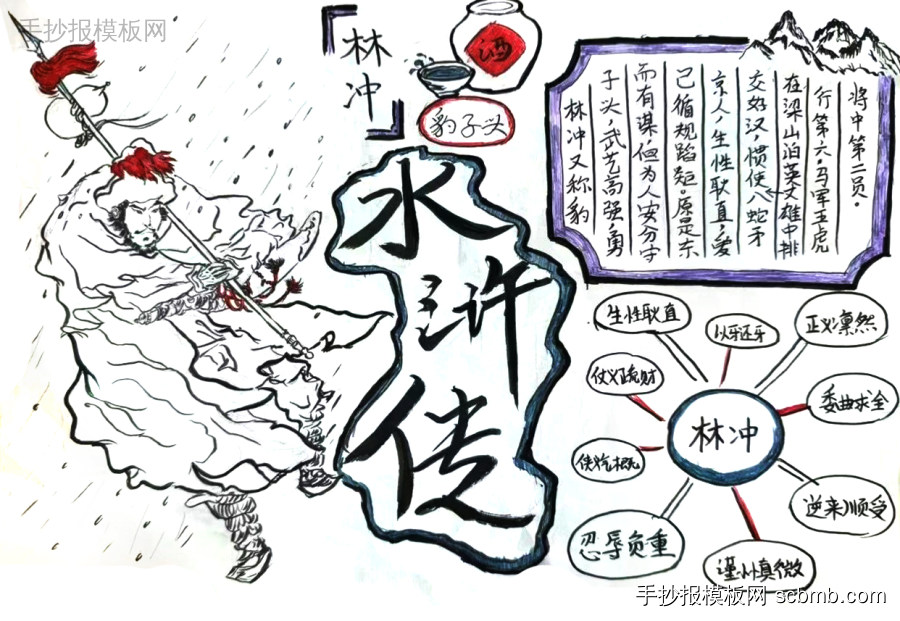 手抄报模板网
林冲
酒
豹子头
水浒传
林冲又称豹
子头，武艺高强，勇
而有谋，但为人安分守
己循规蹈矩。原是东
京人，生性耿直，爱
交好汉，惯使丈八蛇矛
在梁山泊英雄中排
行第六，马军五虎
将中第二员。
生性耿直
以牙还牙
正义凛然
仗义疏财
委曲求全
林冲
侠义气概
逆来顺受
忍辱负重
谨小慎微
手抄报模板网 scbmb.com